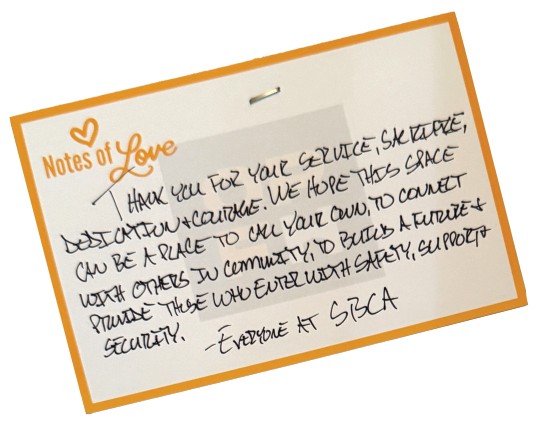 Notes of Love
THANK YOU FOR YOUR SERVICE, SACRIFICE,
DEDICATION & COURAGE. WE HOPE THIS SPACE
CAN BE A PLACE TO CALL YOUR OWN, TO CONNECT
WITH OTHERS IN COMMUNITY, TO BUILD A FUTURE &
PROVIDE THOSE WHO ENTER WITH SAFETY, SUPPORT &
SECURITY. -EVERYONE AT SBCA